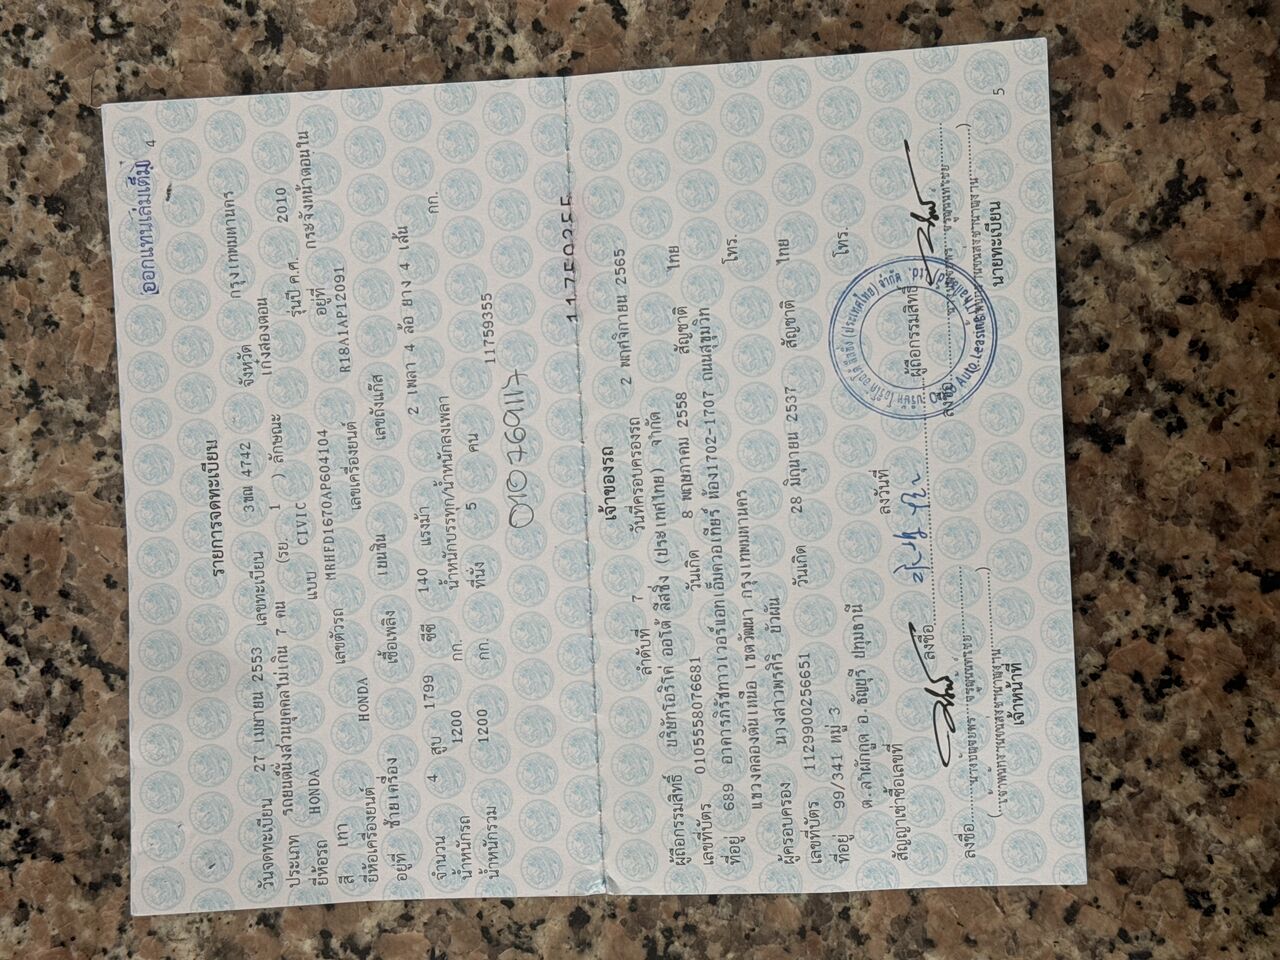 ออกแทนเล่มเดิม
4
รายการจดทะเบียน
วันจดทะเบียน 27 เมษายน 2553 เลขทะเบียน 3ขณ 4742 จังหวัด กรุงเทพมหานคร
ประเภท รถยนต์นั่งส่วนบุคคลไม่เกิน 7 คน (รย. 1 ) ลักษณะ เก๋งสองตอน
ยี่ห้อรถ HONDA แบบ CIVIC รุ่นปี ค.ศ. 2010
สี เทา เลขตัวรถ MRHFD1670AP604104 อยู่ที่ กระจังหน้าตอนใน
ยี่ห้อเครื่องยนต์ HONDA เลขเครื่องยนต์ R18A1AP12091
อยู่ที่ ซ้ายเครื่อง เชื้อเพลิง เบนซิน เลขถังแก๊ส
จำนวน 4 สูบ 1799 ซีซี 140 แรงม้า 2 เพลา 4 ล้อ ยาง 4 เส้น
น้ำหนักรถ 1200 กก. น้ำหนักบรรทุก/น้ำหนักลงเพลา กก.
น้ำหนักรวม 1200 กก. ที่นั่ง 5 คน 11759355
11759355
เจ้าของรถ
ลำดับที่ 7 วันที่ครอบครองรถ 2 พฤศจิกายน 2565
ผู้ถือกรรมสิทธิ์ บริษัทโอริโค่ ออโต้ ลีสซิ่ง (ประเทศไทย) จำกัด
เลขที่บัตร 0105558076681 วันเกิด 8 พฤษภาคม 2558 สัญชาติ ไทย
ที่อยู่ 689 อาคารภิรัชทาวเวอร์แอทเอ็มควอเทียร์ ห้อง1702-1707 ถนนสุขุมวิท โทร.
แขวงคลองตันเหนือ เขตวัฒนา กรุงเทพมหานคร
ผู้ครอบครอง นางสาวพรศิริ บัวผัน
เลขที่บัตร 1129900256651 วันเกิด 28 มิถุนายน 2537 สัญชาติ ไทย
ที่อยู่ 99/341 หมู่ 3 โทร.
ต.ลำผักกูด อ.ธัญบุรี ปทุมธานี
สัญญาเช่าซื้อเลขที่ ลงวันที่
ลงชื่อ ลงชื่อ ผู้ถือกรรมสิทธิ์
ลงชื่อ ลงชื่อ
เจ้าหน้าที่ นายทะเบียน
5